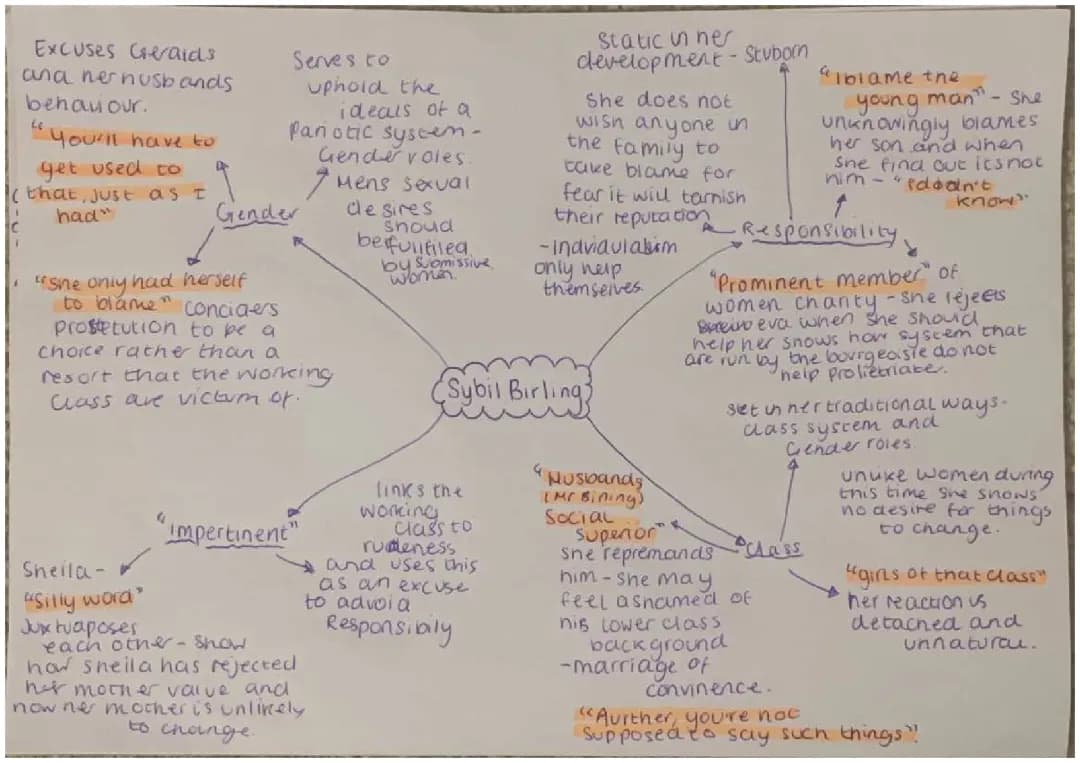 Excuses Geralds
and her husbands
behaviour.
"You'll have to
get used to
that, just as I
had"
Serves to
uphold the
ideals of a
Pariotic system -
Gender roles.
Mens sexual
desires
shoud
be fullfilled
by submissive
women.
Gender
"She only had herself
to blame" conciders
prostetution to be a
choice rather than a
resort that the working
class are victum of.
Static in her
development - Stuborn
She does not
wish anyone in
the family to
take blame for
fear it will tarnish
their reputation
- Indviaulakim
only help
themselves
"I blame the
young man" - She
unknowingly blames
her son and when
she find out its not
him - "I didn't
know"
Responsibility
"Prominent member" of
women charity - she rejects
eva when she should
help her shows how system that
are run by the bourgeoisie do not
help prolietriate.
Sybil Birling
"Impertinent"
Sheila -
"Silly word"
Juxtuaposes
each other - show
how sheila has rejected
her mother value and
how her mother is unlikely
to change.
links the
working
class to
rudeness
and uses this
as an excuse
to advoid
Responsibily
"Husbands
(Mr Birling)
Social
Superior"
she repremands
him - she may
feel ashamed of
his lower class
background
- marriage of
convinence.
"Aurther, you're not
supposed to say such things"
Class
Set in her traditional ways -
class system and
Gender roles.
unlike women during
this time she shows
no desire for things
to change.
"girls of that class"
her reaction is
detached and
unnatural.